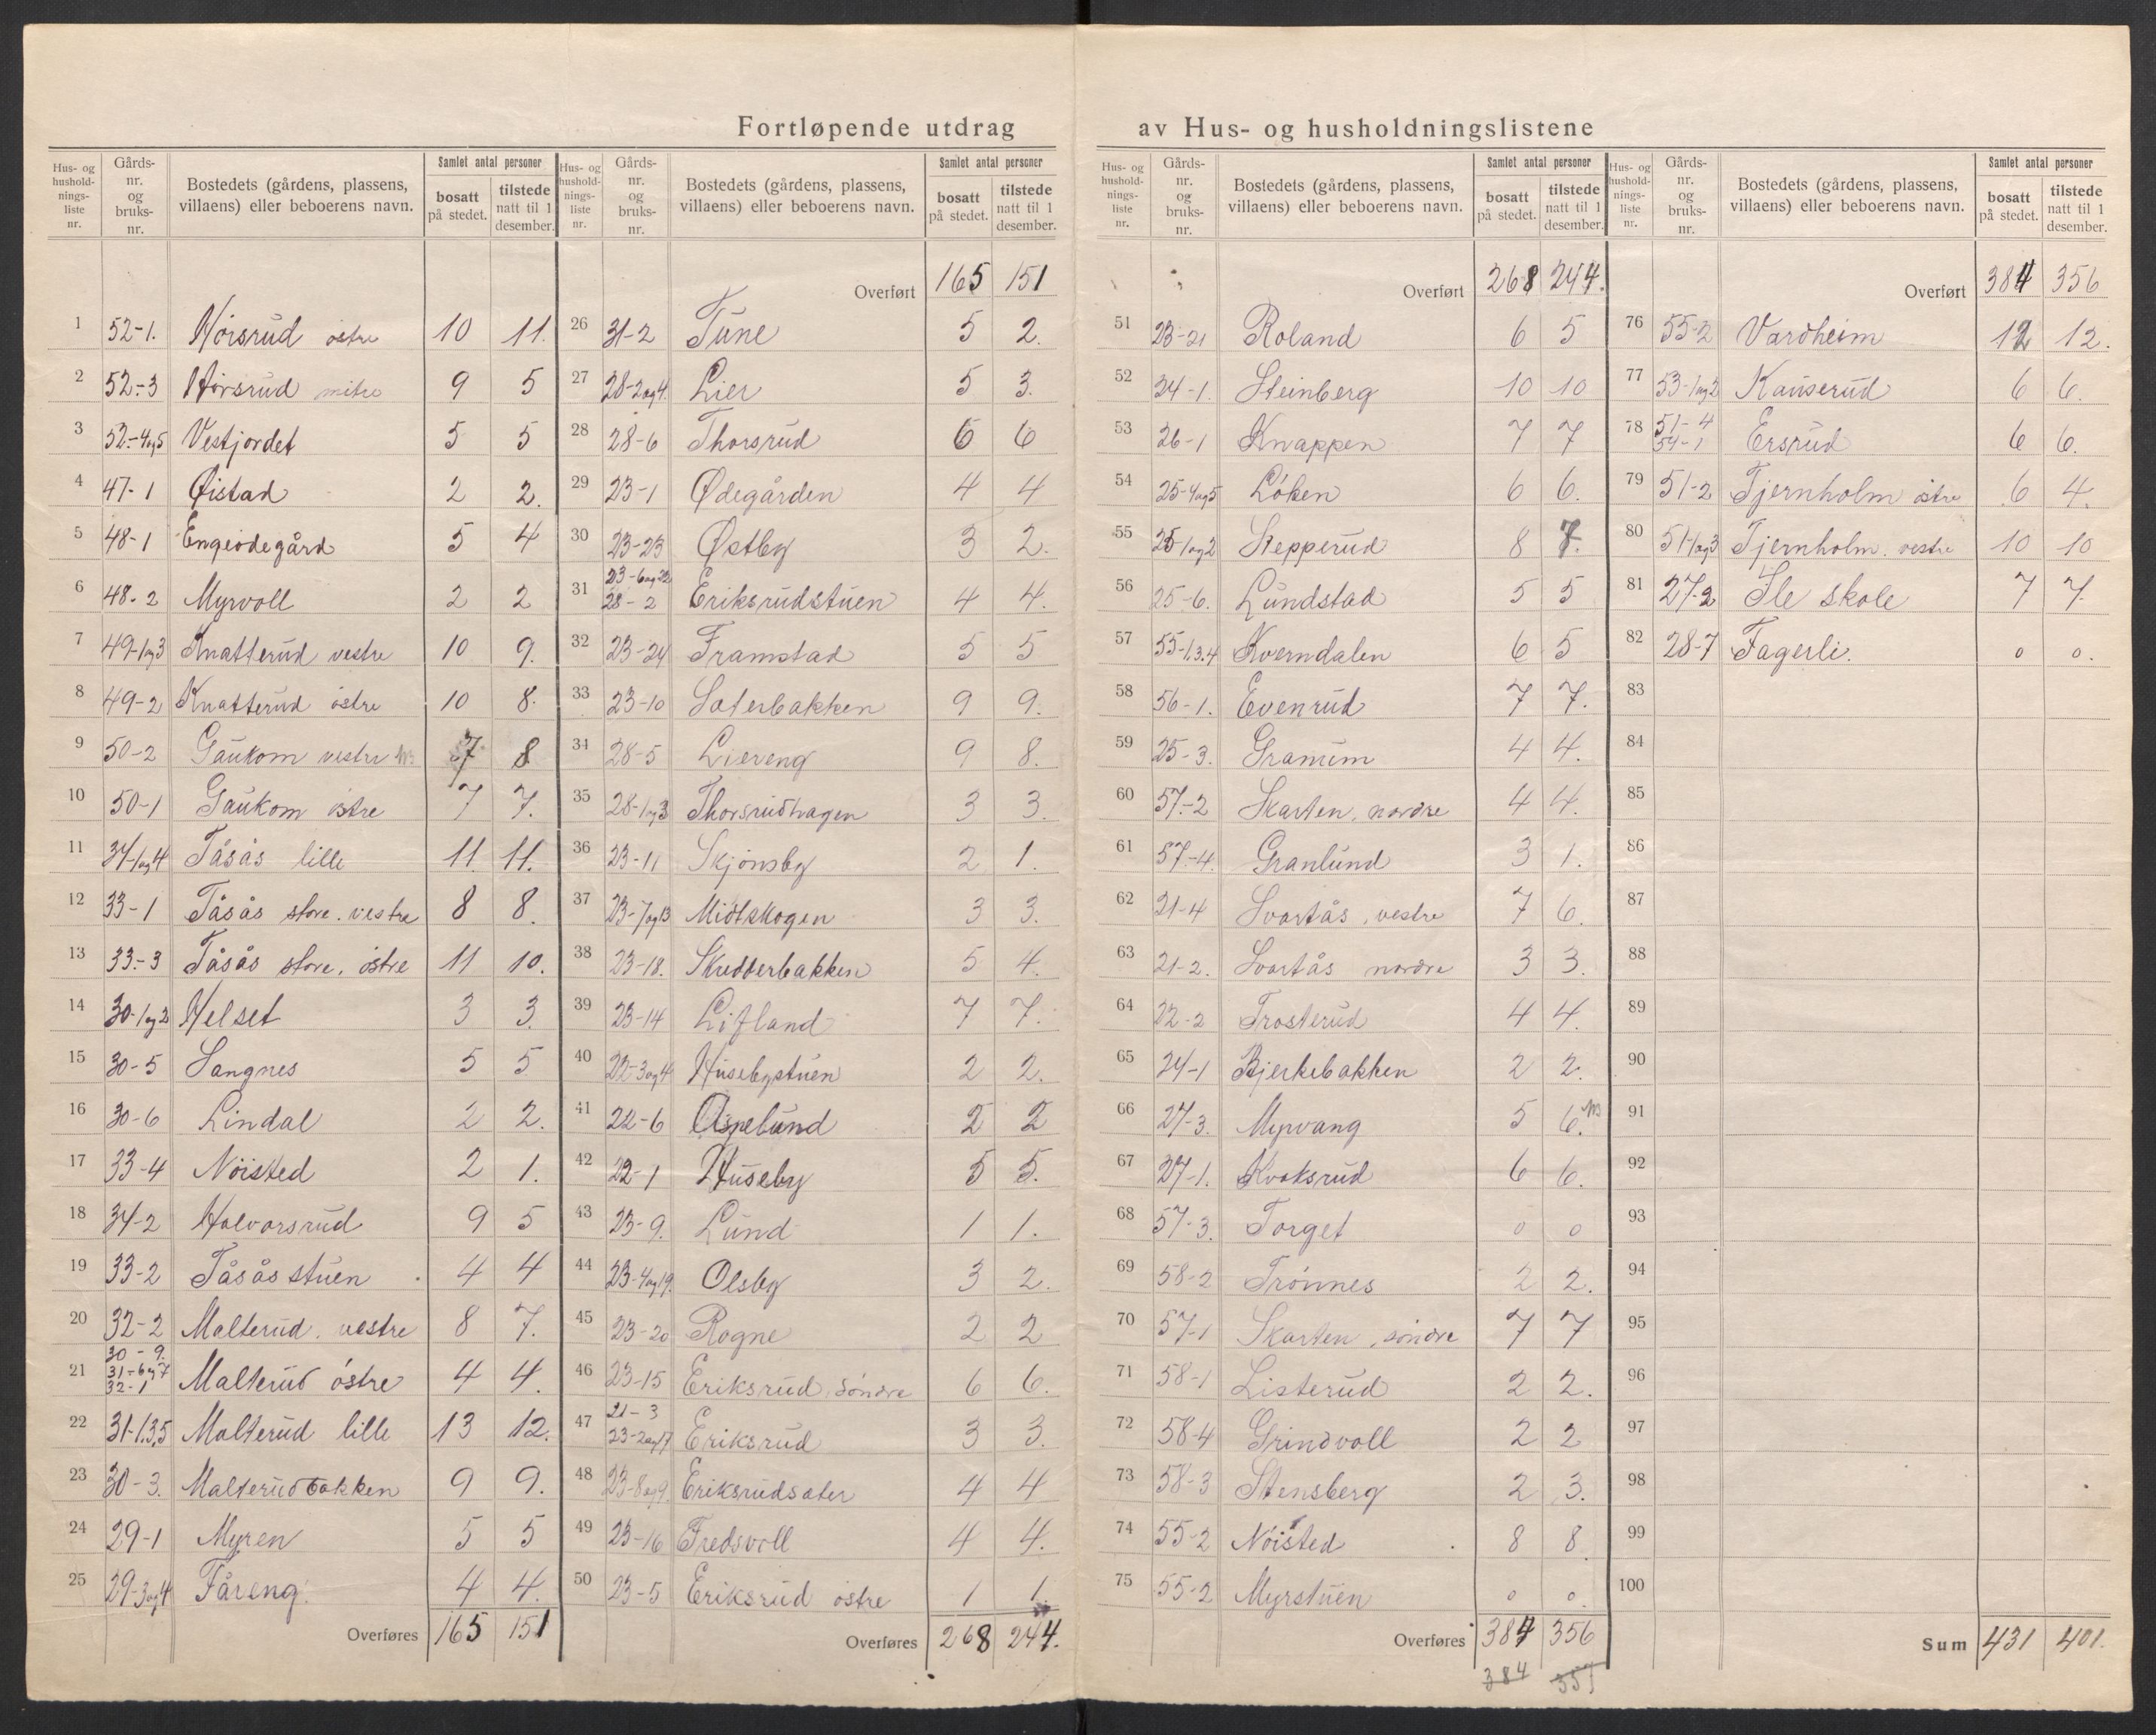 Fortløpende utdrag av Hus- og husholdningslistene
Hus- og hushold-nings-liste nr. Gårds-nr. og bruks-nr. Bostedets (gårdens, plassens, villaens) eller beboerens navn. Samlet antal personer bosatt på stedet. tilstede natt til 1 desember.
1 52-1. Hørsrud østre 10 11.
2 52-3 Hørsrud mitre 9 5
3 52-4og5 Vestjordet 5 5
4 47-1 Øistad 2 2.
5 48-1 Engeødegård 5 4
6 48-2 Myrvoll 2 2
7 49-1og3 Knatterud vestre 10 9.
8 49-2 Knatterud østre 10 8.
9 50-2 Gaukom vestre 7 8
10 50-1 Gaukom østre 7 7.
11 34-1og4 Tåsås lille 11. 11.
12 33-1 Tåsås store. vestre 8 8.
13 33-3 Tåsås store. østre 11 10.
14 30-1og2 Helset 3 3.
15 30-5 Sangnes 5 5
16 30-6 Lindal 2 2.
17 33-4 Nøisted 2 1.
18 34-2 Halvorsrud 9 5
19 33-2 Tåsåsstuen 4 4
20 32-2 Malterud. vestre 8 7.
21 30-9. 31-6og7 32-1 Malterud østre 4 4.
22 31-1.3.5 Malterud lille 13 12.
23 30-3. Malterudbakken 9 9.
24 29-1 Myren 5 5
25 29-3og4 Fåreng. 4 4.
Overføres 165 151
Hus- og hushold-nings-liste nr. Gårds-nr. og bruks-nr. Bostedets (gårdens, plassens, villaens) eller beboerens navn. Samlet antal personer bosatt på stedet. tilstede natt til 1 desember.
Overført 165 151
26 31-2 Tune 5 2.
27 28-2og4. Lier 5 3.
28 28-6 Thorsrud 6 6
29 23-1 Ødegården 4 4
30 23-23 Østby 3 2.
31 23-6og22 28-2 Eriksrudstuen 4 4.
32 23-24 Framstad 5 5
33 23-10 Sæterbakken 9 9.
34 28-5 Liereng 9 8.
35 28-1og3 Thorsrudhagen 3 3.
36 23-11 Skjønsby 2 1.
37 23-7og13 Midtskogen 3 3.
38 23-18. Skudderbakken 5 4.
39 23-14 Lifland 7 7.
40 22-3og4 Husebystuen 2 2.
41 22-6 Aspelund 2 2
42 22-1 Huseby 5 5.
43 23-9. Lund 1 1.
44 23-4og19. Olsby 3 2.
45 23-20 Rogne 2 2
46 23-15 Eriksrud, søndre 6 6.
47 21-3 23-2og17 Eriksrud 3 3.
48 23-8og9. Eriksrudsæter 4 4
49 23-16 Fredsvoll 4 4.
50 23-5 Eriksrud østre 1 1.
Overføres 268 244.
Hus- og hushold-nings-liste nr. Gårds-nr. og bruks-nr. Bostedets (gårdens, plassens, villaens) eller beboerens navn. Samlet antal personer bosatt på stedet. tilstede natt til 1 desember.
Overført 268 244.
51 23-21 Roland 6 5
52 34-1. Steinberg 10 10
53 26-1 Knappen 7 7
54 25-4og5 Løken 6 6.
55 25-1og2 Stepperud 8 7.
56 25-6. Lundstad 5 5
57 55-1,3.4 Kverndalen 6 5
58 56-1. Evenrud 7 7.
59 25-3. Granum 4 4.
60 57-2 Skarten, nordre 4 4.
61 57-4. Granlund 3 1.
62 21-4 Svartås, vestre 7 6.
63 21-2. Svartås nordre 3 3.
64 22-2 Trosterud 4 4.
65 24-1 Bjerkebakken 2 2.
66 27-3. Myrvang 5 6.
67 27-1. Kvaksrud 6 6.
68 57-3. Torget 0 0
69 58-2 Trønnes 2 2.
70 57-1 Skarten, søndre 7 7
71 58-1 Listerud 2 2.
72 58-4 Grindvoll 2 2
73 58-3 Stensberg 2 3.
74 55-2 Nøisted 8 8
75 55-2 Myrstuen 0 0.
Overføres 384 356
384 357
Hus- og hushold-nings-liste nr. Gårds-nr. og bruks-nr. Bostedets (gårdens, plassens, villaens) eller beboerens navn. Samlet antal personer bosatt på stedet. tilstede natt til 1 desember.
Overført 384 356
76 55-2 Vardheim 12 12.
77 53-1og2 Kauserud 6 6.
78 51-4 54-1 Ersrud 6 6.
79 51-2 Tjernholm østre 6 4.
80 51-1og3 Tjernholm. vestre 10 10
81 27-2 Ile skole 7 7.
82 28-7 Fagerli. 0 0.
83
84
85
86
87
88
89
90
91
92
93
94
95
96
97
98
99
100
Sum 431 401.